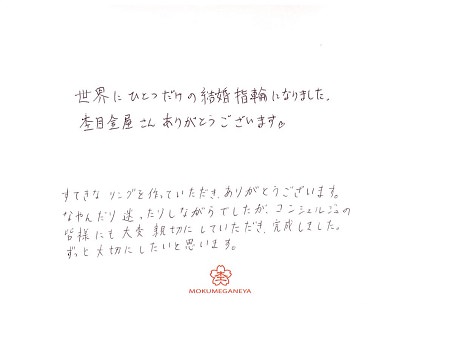 世界にひとつだけの結婚指輪になりました。
杢目金屋さんありがとうございます。
すてきなリングを作っていただき、ありがとうございます。
なやんだり迷ったりしながらでしたが、コンシェルジュの
皆様にも大変親切にしていただき、完成しました。
ずっと大切にしたいと思います。
杢
MOKUMEGANEYA